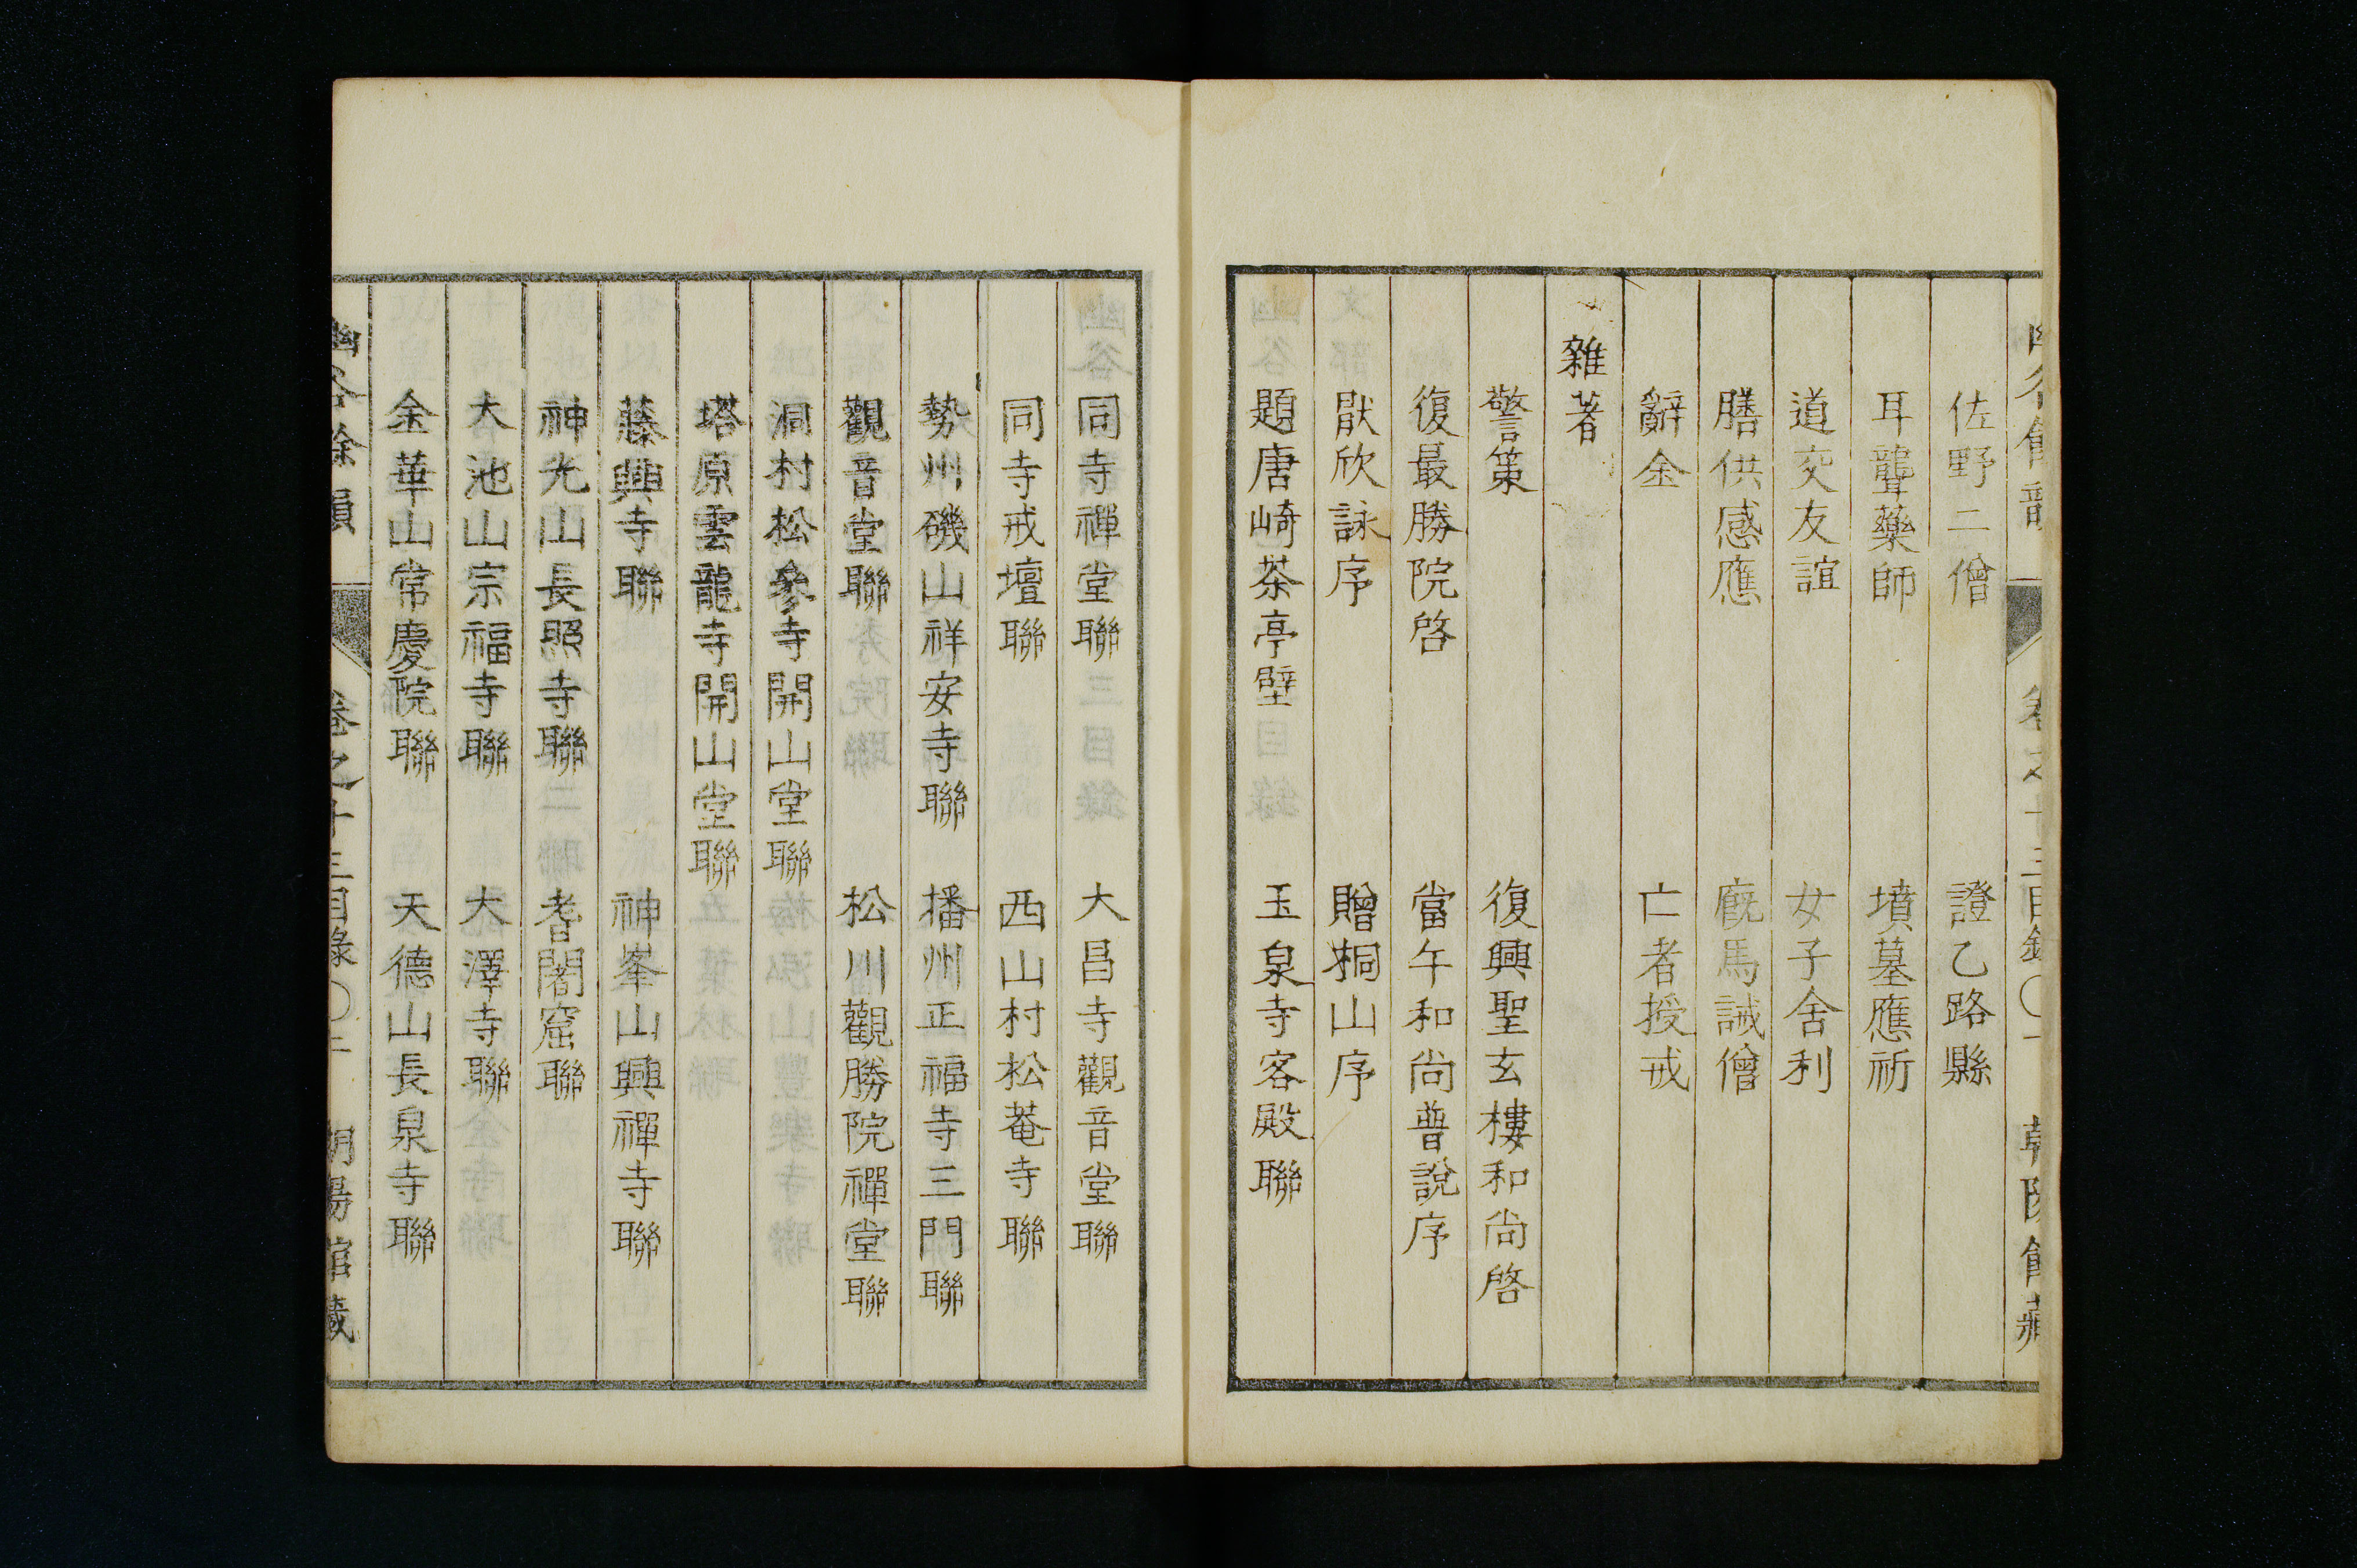 佐野二僧　證乙路縣
耳聾藥師　墳墓應祈
道交友誼　女子舍利
膳供感應　廐馬誡僧
辭金　亡者授戒
雜著
警策　復興聖玄樓和尚啓
復最勝院啓　當午和尚普說序
猒欣詠序　贈桐山序
題唐崎茶亭壁　玉泉寺客殿聯
同寺禪堂聯　大昌寺觀音堂聯
同寺戒壇聯　西山村松菴寺聯
勢州磯山祥安寺聯　播州正福寺三門聯
觀音堂聯　松川觀勝院禪堂聯
洞村松參寺開山堂聯
塔原雲龍寺開山堂聯
藤興寺聯　神峯山興禪寺聯
神光山長照寺聯　耆闍窟聯
大池山宗福寺聯　大澤寺聯
金華山常慶院聯　天德山長泉寺聯
幽谷餘韻　卷之十三目錄〇二　朝陽館藏